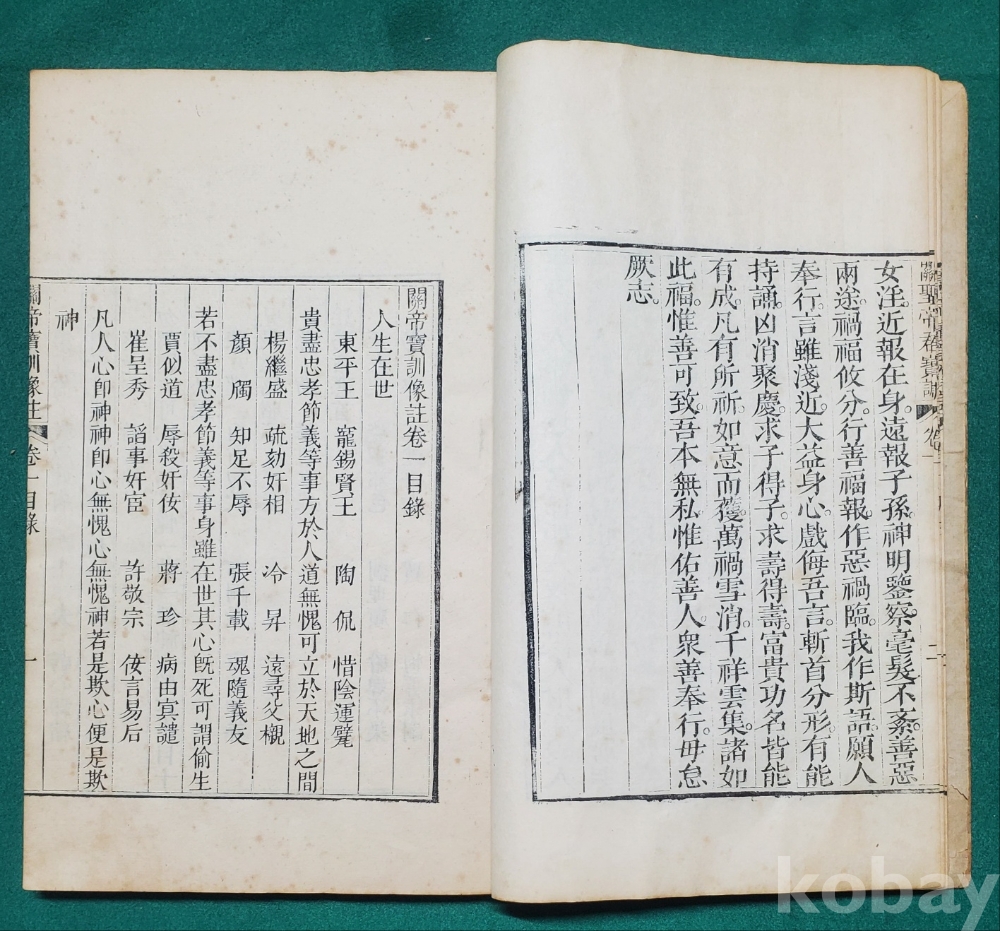 女淫。近報在身。遠報子孫。神明鑒察。毫髮不紊。善惡
兩途。禍福攸分。行善福報。作惡禍臨。我作斯語。願人
奉行。言雖淺近。大益身心。戲侮吾言。斬首分形。有能
持誦。凶消聚慶。求子得子。求壽得壽。富貴功名。皆能
有成。凡有所祈。如意而獲。萬禍雪消。千祥雲集。諸如
此福。惟善可致。吾本無私。惟佑善人。衆善奉行。毋怠
厥志。
關帝寶訓像註卷一目錄
人生在世
東平王 寵錫賢王 陶侃 惜陰運甓
貴盡忠孝節義等事方於人道無愧可立於天地之間
楊繼盛 疏劾奸相 冷昇 遠尋父櫬
顏斶 知足不辱 張千載 魂隨義友
若不盡忠孝節義等事身雖在世其心旣死可謂偷生
賈似道 辱殺奸侫 蔣珍 病由冥譴
崔呈秀 謟事奸宦 許敬宗 侫言易后
凡人心卽神神卽心無愧心無愧神若是欺心便是欺
神
關帝寶訓像註 卷一目錄 一
kobay